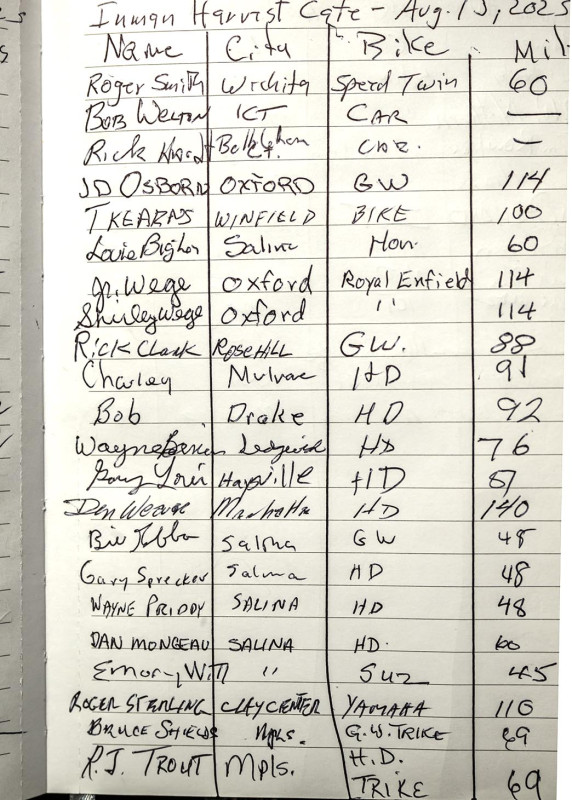 Inman Harvest Cafe - Aug. 15, 2025
Name City Bike Mil
Roger Smith Wichita Speed Twin 60
BOB WELTON ICT CAR —
Rick CAR. —
JD OSBORN OXFORD GW 114
T KEARNS WINFIELD BIKE 100
Louie Salina Hon. 60
Jr. Wege Oxford Royal Enfield 114
Shirley Wege Oxford " 114
Rick Clark ROSE HILL GW. 88
Charley Mulvane HD 91
Bob Drake HD 92
Wayne HD 76
Gary Haysville HD 87
Den Weaver HD 140
Bill Salina GW 48
Gary Sprecker Salina HD 48
WAYNE PRIDDY SALINA HD 48
DAN MONGEAU SALINA HD. 60
Emory Will " Suz 45
ROGER STERLING CLAY CENTER YAMAHA 110
BRUCE SHIELDS Mpls. G.W. TRIKE 69
R.J. TROUT Mpls. H.D.
TRIKE 69